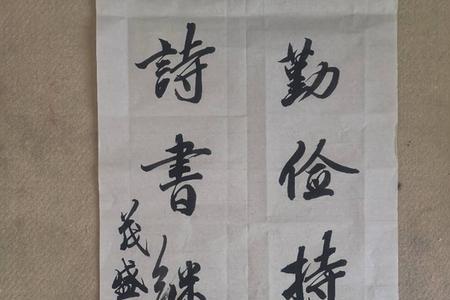 勤俭持
詩書継
茂盛